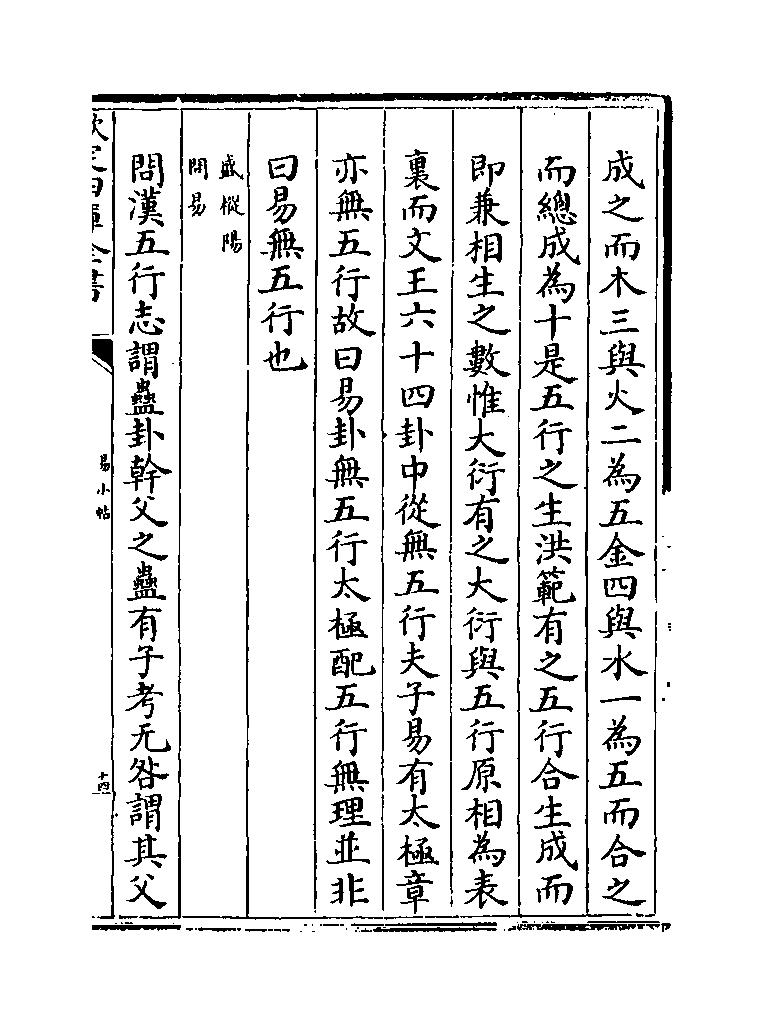 成之而木三與火二為五金四與水一為五而合之
而總成為十是五行之生洪範有之五行合生成而
即兼相生之數惟大衍有之大衍與五行原相為表
裏而文王六十四卦中從無五行夫子易有太極章
亦無五行故曰易卦無五行太極配五行無理並非
曰易無五行也
盛樅陽
問易
問漢五行志謂蠱卦幹父之蠱有子考无咎謂其父
欽定四庫全書
易小帖
十四